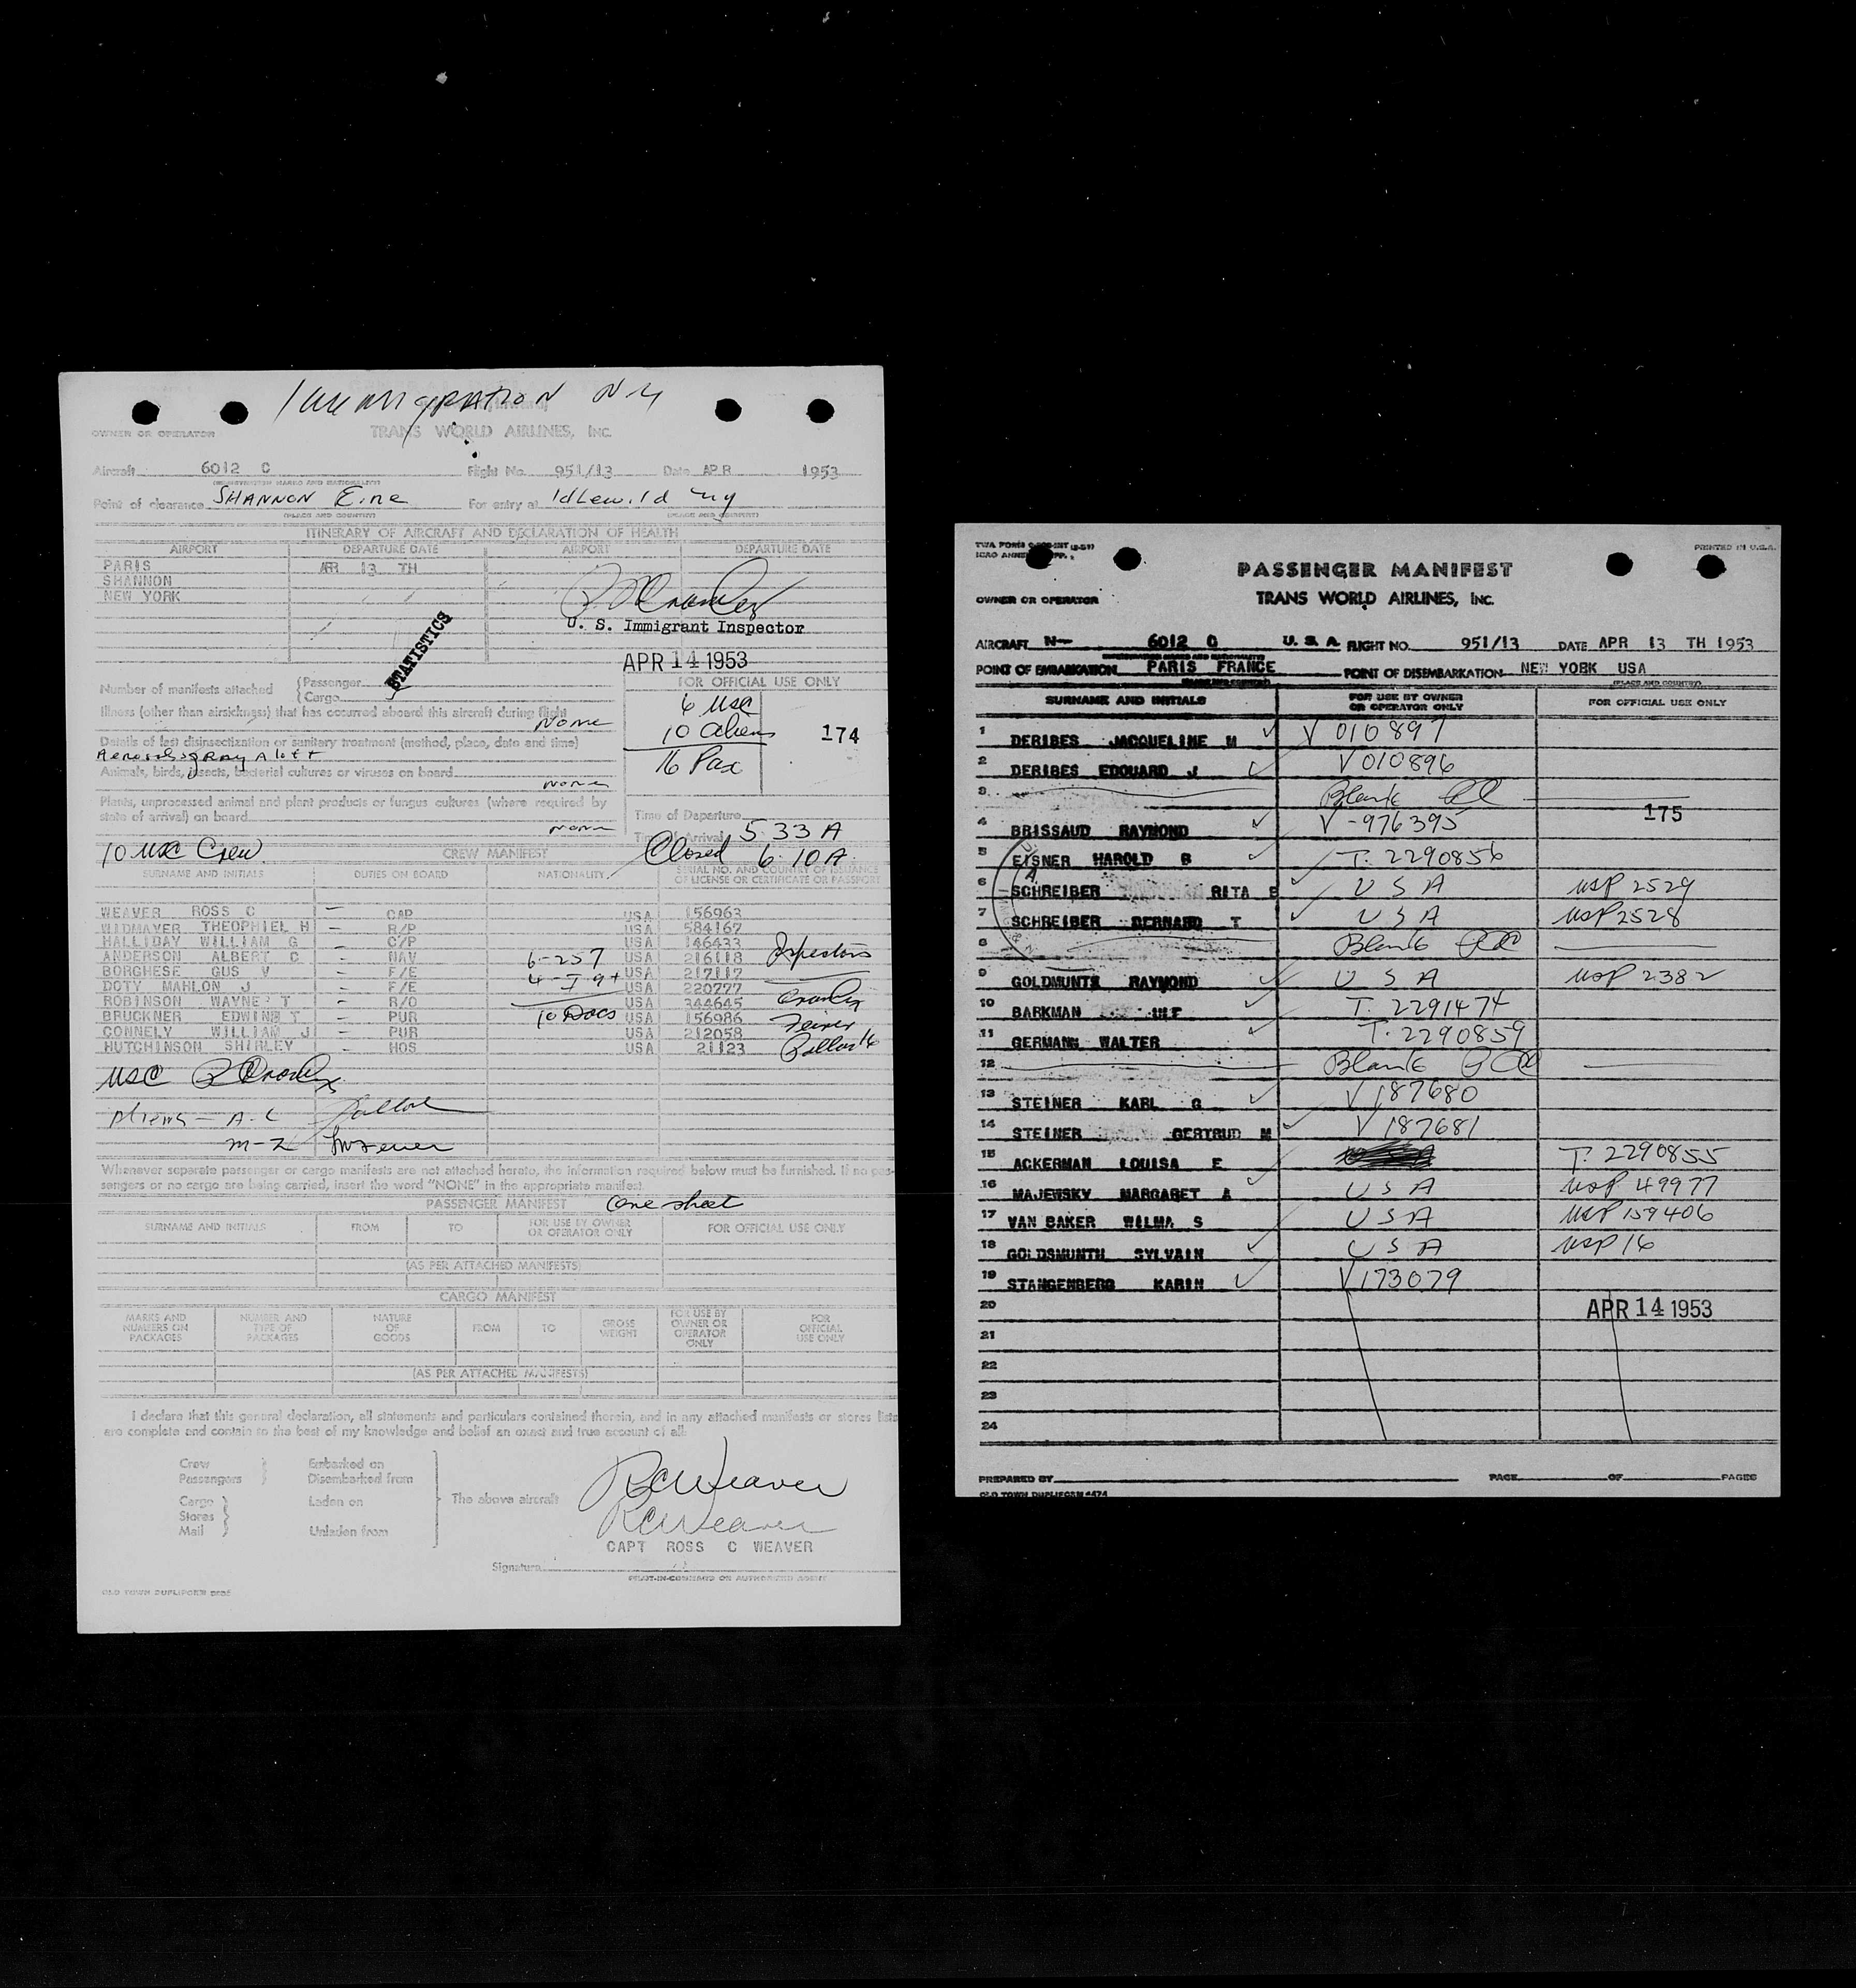 Immigration NY
OWNER OR OPERATOR TRANS WORLD AIRLINES, INC.
Aircraft 6012 C Flight No. 951/13 Date APR 1953
Point of clearance SHANNON Eire For entry at Idlewild NY
(PLACE AND COUNTRY) (PLACE AND COUNTRY)
ITINERARY OF AIRCRAFT AND DECLARATION OF HEALTH
AIRPORT DEPARTURE DATE AIRPORT DEPARTURE DATE
PARIS APR 13 TH
SHANNON
NEW YORK
U. S. Immigrant Inspector
STATISTICS
APR 14 1953
Number of manifests attached {Passenger
{Cargo
FOR OFFICIAL USE ONLY
6 USC
10 Aliens
16 Pax
174
Illness (other than airsickness) that has occurred aboard this aircraft during flight
None
Details of last disinsectization or sanitary treatment (method, place, date and time)
Aerosol spray Aloft
Animals, birds, insects, bacterial cultures or viruses on board
None
Plants, unprocessed animal and plant products or fungus cultures (where required by
state of arrival) on board
None
Time of Departure
Time of Arrival 5 33 A
Closed 6 10 A
10 USC Crew.
CREW MANIFEST
SURNAME AND INITIALS DUTIES ON BOARD NATIONALITY SERIAL NO. AND COUNTRY OF ISSUANCE
OF LICENSE OR CERTIFICATE OR PASSPORT
WEAVER ROSS C – CAP USA 156963
WIDMAYER THEOPHIEL H – R/P USA 584167
HALLIDAY WILLIAM G – C/P USA 146433
ANDERSON ALBERT C – NAV USA 216118
BORGHESE GUS V – F/E USA 217117
DOTY MAHLON J – F/E USA 220777
ROBINSON WAYNE T – R/O USA 344645
BRUCKNER EDWIN T – PUR USA 156986
CONNELY WILLIAM J – PUR USA 212058
HUTCHINSON SHIRLEY – HOS USA 21123
6-257
4-I-94
10 Docs
Inspectors
USC
Aliens – A-L
M-Z
Whenever separate passenger or cargo manifests are not attached hereto, the information required below must be furnished. If no pas-
sengers or no cargo are being carried, insert the word "NONE" in the appropriate manifest.
PASSENGER MANIFEST One sheet
SURNAME AND INITIALS FROM TO FOR USE BY OWNER
OR OPERATOR ONLY FOR OFFICIAL USE ONLY
(AS PER ATTACHED MANIFESTS)
CARGO MANIFEST
MARKS AND
NUMBERS ON
PACKAGES NUMBER AND
TYPE OF
PACKAGES NATURE
OF
GOODS FROM TO GROSS
WEIGHT FOR USE BY
OWNER OR
OPERATOR
ONLY FOR
OFFICIAL
USE ONLY
(AS PER ATTACHED MANIFESTS)
I declare that this general declaration, all statements and particulars contained therein, and in any attached manifests or stores lists
are complete and contain to the best of my knowledge and belief an exact and true account of all:
Crew Embarked on
Passengers Disembarked from
Cargo Laden on The above aircraft
Stores
Mail Unladen from
RCWeaver
RCWeaver
CAPT ROSS C WEAVER
Signature
PILOT-IN-COMMAND OR AUTHORIZED AGENT
OLD TOWN DUPLIFORM
PRINTED IN U.S.A.
PASSENGER MANIFEST
OWNER OR OPERATOR TRANS WORLD AIRLINES, INC.
AIRCRAFT N– 6012 C U. S. A FLIGHT NO. 951/13 DATE APR 13 TH 1953
POINT OF EMBARKATION PARIS FRANCE POINT OF DISEMBARKATION NEW YORK USA
(PLACE AND COUNTRY)
SURNAME AND INITIALS FOR USE BY OWNER
OR OPERATOR ONLY FOR OFFICIAL USE ONLY
1 DERIBES JACQUELINE M ✓ V 010897
2 DERIBES EDOUARD J ✓ V010896
3 Blank
175
4 BRISSAUD RAYMOND ✓ V-976395
5 EISNER HAROLD B ✓ T. 2290856
6 SCHREIBER RITA B ✓ U S A USP 2529
7 SCHREIBER BERNARD T ✓ U S A USP 2528
8 Blank
9 GOLDMUNTZ RAYMOND ✓ U S A USP 2382
10 BARKMAN ULF ✓ T. 2291474
11 GERMANN WALTER ✓ T. 2290859
12 Blank
13 STEINER KARL G ✓ V187680
14 STEINER GERTRUD M ✓ V 187681
15 ACKERMAN LOUISA E ✓ T. 2290855
16 MAJEWSKY MARGARET A ✓ U S A USP 49977
17 VAN BAKER WILMA S ✓ U S A USP 159406
18 GOLDSMUNTH SYLVAIN ✓ U S A USP 16
19 STANGENBERG KARIN ✓ V173079
20
APR 14 1953
21
22
23
24
PREPARED BY PAGE OF PAGES
OLD TOWN DUPLIFORM 4474